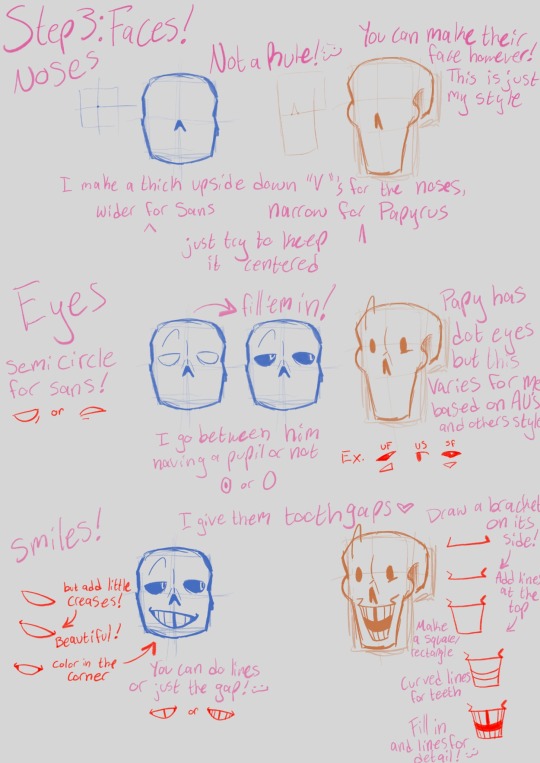 Step 3: Faces!
Noses
Not a Rule! :)
You can make their
face however!
This is just
my style
I make a thick upside down "V"'s for the noses,
wider for Sans
narrow for Papyrus
just try to keep
it centered
Eyes
semi circle
for sans!
or
fill 'em in!
I go between him
having a pupil or not
or
Papy has
dot eyes
but this
varies for me
based on AU's
and others style
Ex.
UF
US
SF
Smiles!
I give them toothgaps ♡
but add little
creases!
Beautiful!
Color in the
corner
You can do lines
or just the gap! :)
or
Draw a bracket
on its
side!
Add lines
at the
top
Make
a square/
rectangle
Curved lines
for teeth
Fill in
and lines for
detail! :)